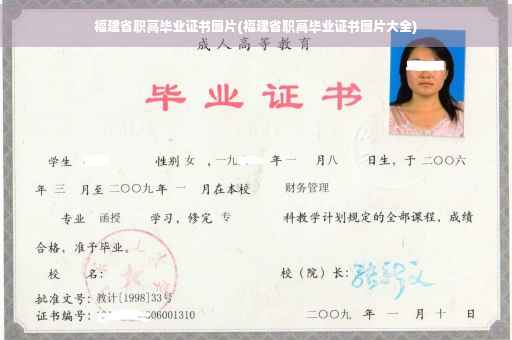 福建省职高毕业证书图片(福建省职高毕业证书图片大全)
成人高等教育
毕业证书
学生 性别 女 ,一九 年 一 月八 日生，于 二〇〇六
年 三 月至 二〇〇九 年 一 月在本校 财务管理
专业 函授 学习，修完 专 科教学计划规定的全部课程，成绩
合格，准予毕业。
校 名： 校（院）长：
批准文号：教计[1998]33号
证书编号： 06001310 二〇〇九 年 一 月 十 日